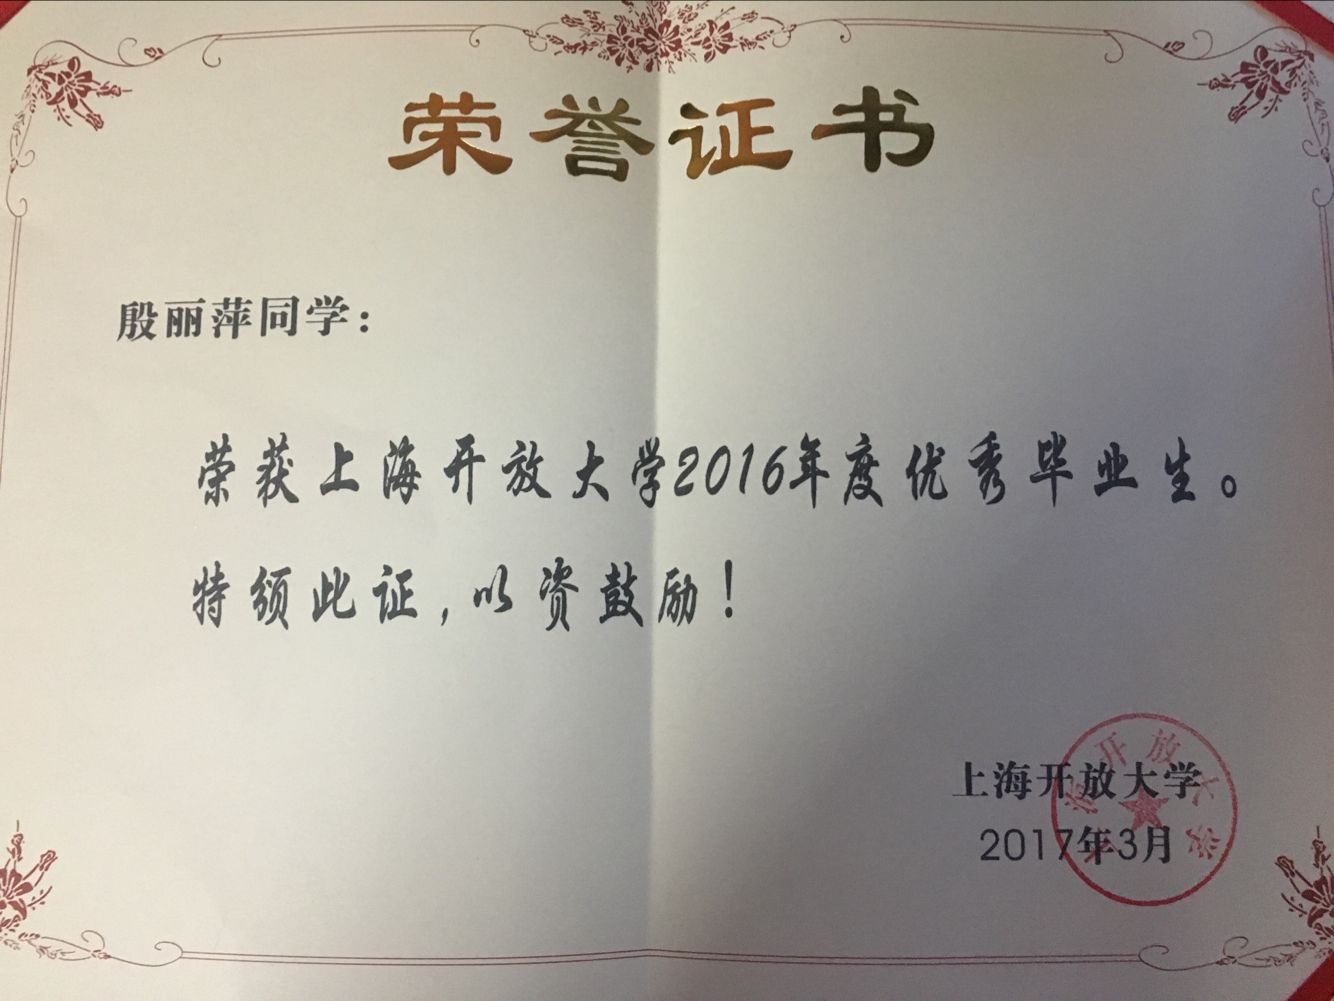 荣誉证书
殷丽萍同学：
荣获上海开放大学2016年度优秀毕业生。
特颁此证，以资鼓励！
上海开放大学
2017年3月
上海开放大学